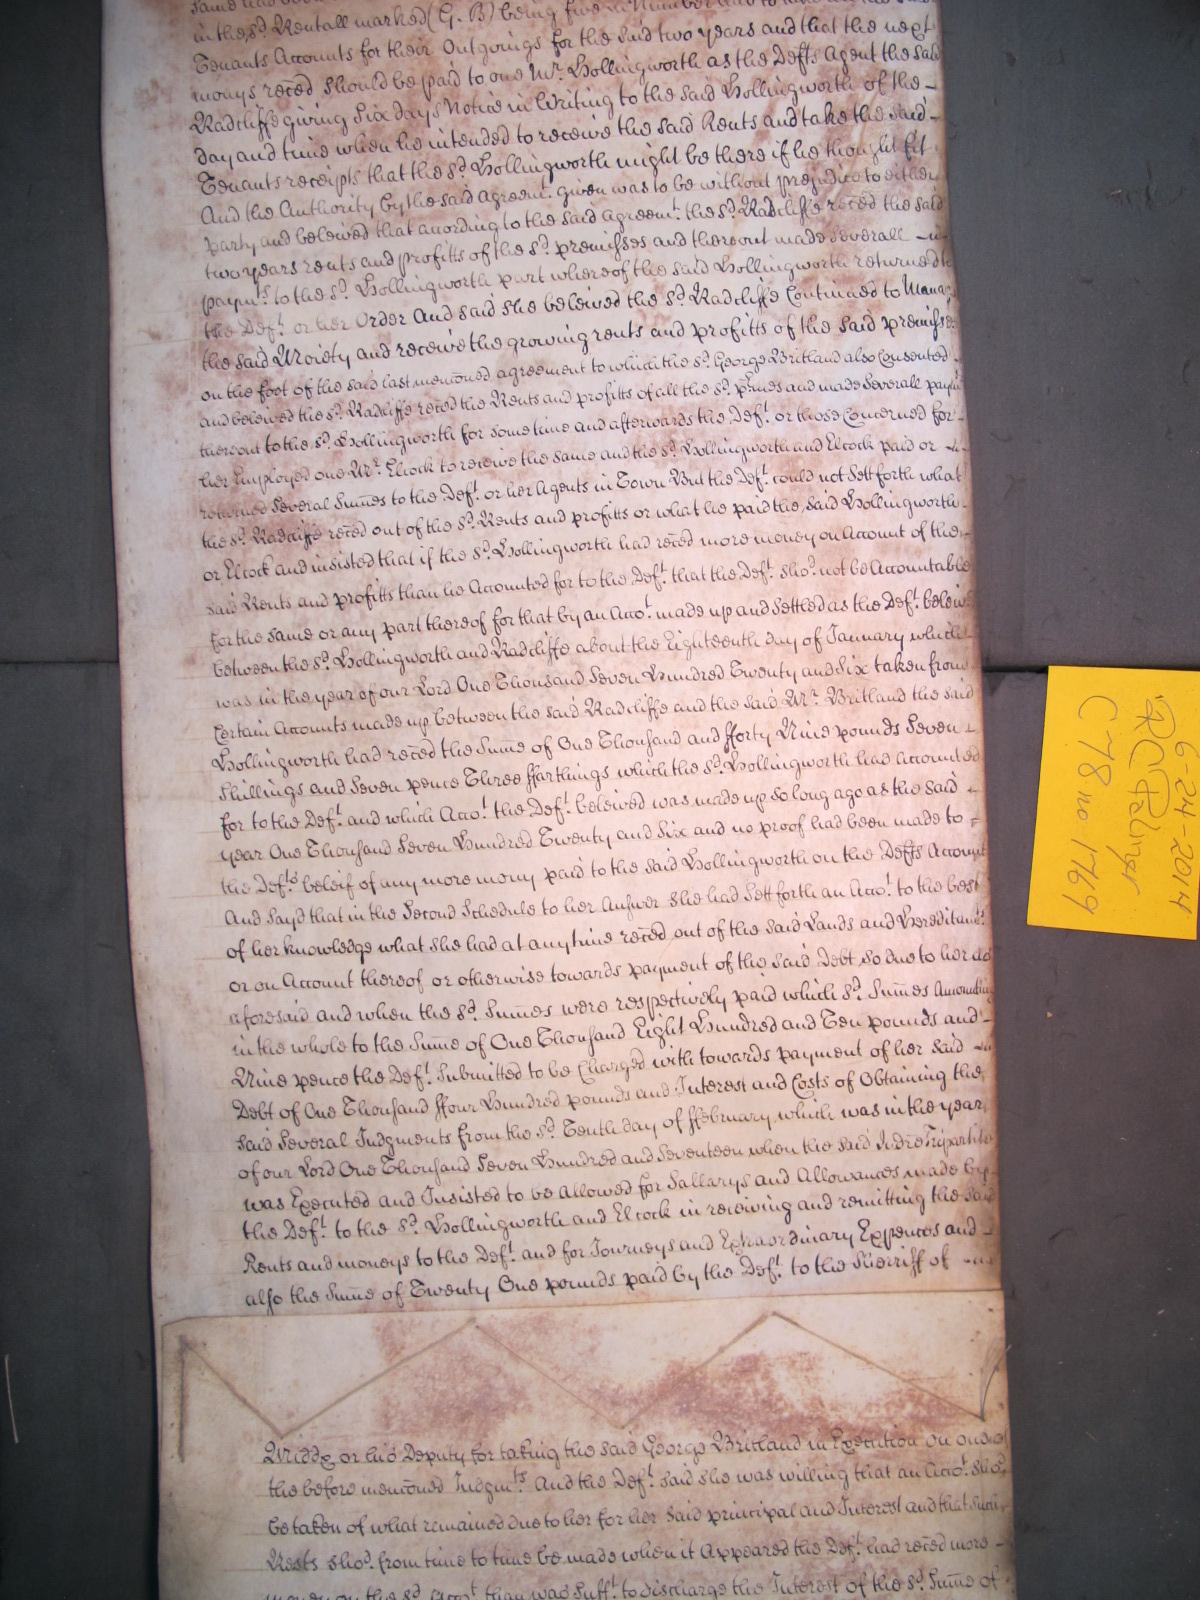 in the sd. Rentall marked (G. B) being five in Number
Tenants Accounts for their Outgoings for the said two years and that the next
monys reced should be paid to one Mr. Hollingworth as the Defts Agent the said
Radcliffe giving Six days Notice in Writing to the said Hollingworth of the
day and time when he intended to receive the said Rents and take the said
Tenants receipts that the sd. Hollingworth might be there if he thought fit
And the Authority by the said Agreemt. given was to be without prejudice to either
party and beleived that according to the said Agreemt. the sd. Radcliffe reced the said
two years rents and profitts of the sd. premisses and thereout made severall
paymts. to the sd. Hollingworth part whereof the said Hollingworth returned to
the Deft. or her Order And said she beleived the sd. Radcliffe Continued to Manage
the said Moiety and receive the growing rents and profitts of the said premisses
on the foot of the said last menconed agreement to which the sd. George Britland also Consented
and beleived the sd. Radcliffe reced the Rents and profitts of all the sd. prmes and made Severall paymts
thereout to the sd. Hollingworth for some time and afterwards the Deft. or those Concerned for
her Employed one Mr. Elcock to receive the same and the sd. Hollingworth and Elcock paid or
returned Several Sumes to the Deft. or her Agents in Town But the Deft. could not Sett forth what
the sd. Radcliffe reced out of the sd. Rents and profitts or what he paid the said Hollingworth
or Elcock and insisted that if the sd. Hollingworth had reced more money on Account of the
said Rents and profitts than he Accounted for to the Deft. that the Deft. shod. not be Accountable
for the same or any part thereof for that by an Accot. made up and settled as the Deft. beleived
between the sd. Hollingworth and Radcliffe about the Eighteenth day of January which
was in the year of our Lord One Thousand Seven Hundred Twenty and Six taken from
Certain Accounts made up between the said Radcliffe and the said Mr. Britland the said
Hollingworth had reced the Sume of One Thousand and fforty Nine pounds Seven
shillings and Seven pence Three ffarthings which the sd. Hollingworth had Accounted
for to the Deft. and which Accot. the Deft. beleived was made up so long ago as the said
year One Thousand Seven Hundred Twenty and Six and no proof had been made to
the Defts. beleif of any more mony paid to the said Hollingworth on the Defts Account
And Says that in the Second Schedule to her Answer she had Sett forth an Accot. to the best
of her knowledge what she had at any time reced out of the said Lands and Hereditamts.
or on Account thereof or otherwise towards payment of the said Debt so due to her as
aforesaid and when the sd. Sumes were respectively paid which sd. Sumes Amounting
in the whole to the Sume of One Thousand Eight Hundred and Ten pounds and
Nine pence the Deft. Submitted to be Charged with towards payment of her said
Debt of One Thousand ffour Hundred pounds and Interest and Costs of Obtaining the
said Several Judgments from the sd. Tenth day of ffebruary which was in the year
of our Lord One Thousand Seven Hundred and Seventeen when the said Indre Tripartite
was Executed and Insisted to be allowed for Sallarys and Allowances made by
the Deft. to the sd. Hollingworth and Elcock in receiving and remitting the said
Rents and moneys to the Deft. and for Journeys and Extraordinary Expences and
also the Sume of Twenty One pounds paid by the Deft. to the Sherriff of
Middx or his Deputy for taking the said George Britland in Execution on one of
the before menconed Judgmts. And the Deft. said she was willing that an Accot. shod.
be taken of what remained due to her for her said principal and Interest and that such
Rests shod. from time to time be made when it Appeared the Deft. had reced more
money on the sd. Accot. than was Sufft. to discharge the Interest of the sd. Sume of
6-24-2014
RC Palmer
C 78 no 1769